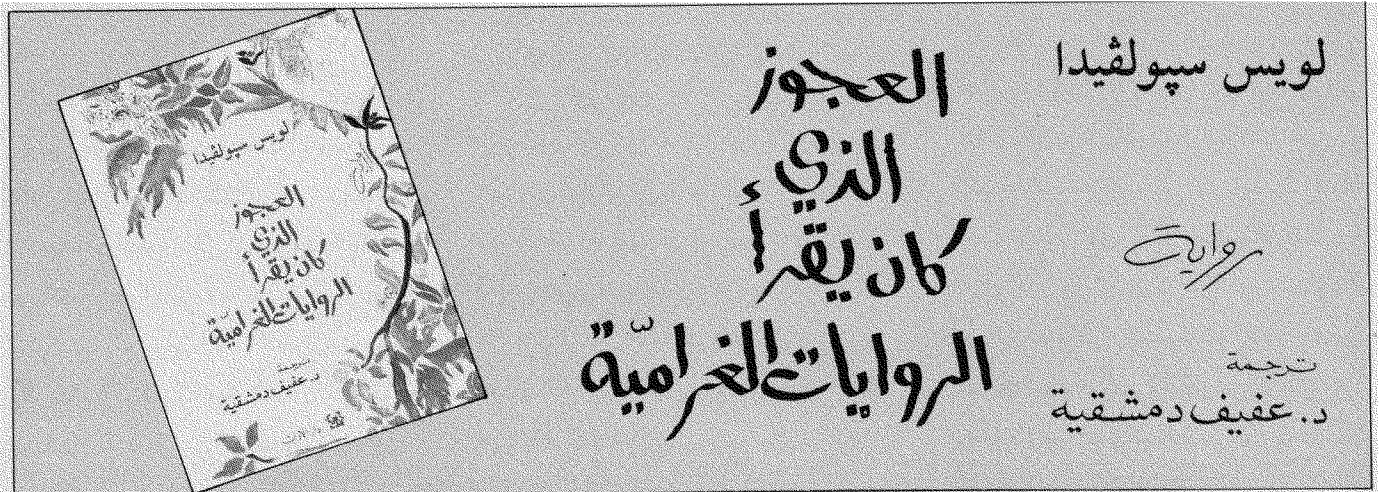 لويس سپولڤيدا
رواية
ترجمة
د. عفيف دمشقية
العجوز
الذي
كان يقرأ
الروايات الغراميّة
لويس سپولڤيدا
العجوز
الذي
كان يقرأ
الروايات الغراميّة
ترجمة
د. عفيف دمشقية